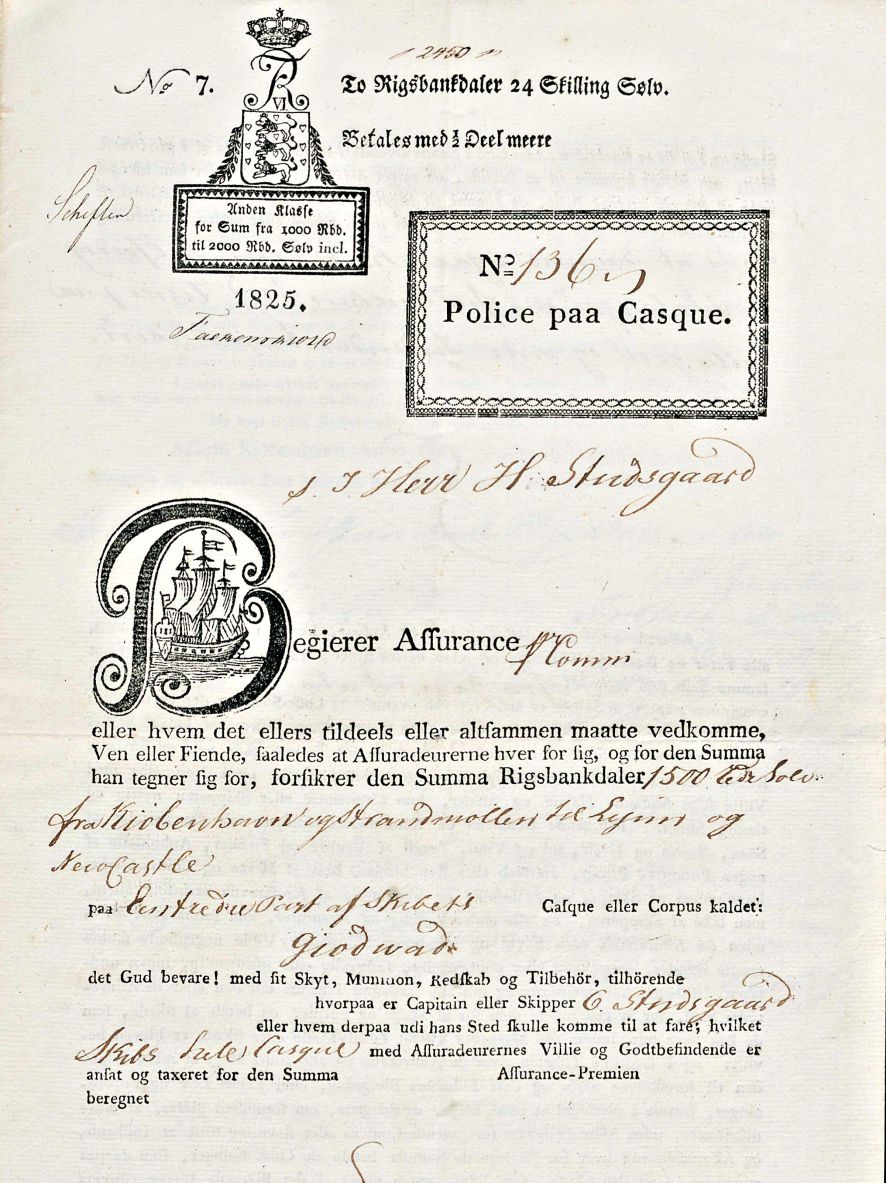 2450
No 7.
To Rigsbankdaler 24 Skilling Sølv.
Betales med ½ Deel meere
FR VI
Anden Klasse
for Sum fra 1000 Rbd.
til 2000 Rbd. Sølv incl.
1825.
No 136
Police paa Casque.
S. T. Herr H. Studsgaard
Begierer Aſſurance pr Comm
eller hvem det ellers tildeels eller altſammen maatte vedkomme,
Ven eller Fiende, ſaaledes at Aſſuradeurerne hver for ſig, og for den Summa
han tegner ſig for, forſikrer den Summa Rigsbankdaler 1500 rede Sölv
fra Kiöbenhavn og Strandmöllen til og
NewCastle
paa Een tredie Part af Skibets Caſque eller Corpus kaldet:
Giödwad
det Gud bevare! med ſit Skyt, Munition, Redſkab og Tilbehör, tilhörende
hvorpaa er Capitain eller Skipper C. Studsgaard
eller hvem derpaa udi hans Sted ſkulle komme til at fare; hvilket
Skibs hele Casque med Aſſuradeurernes Villie og Godtbefindende er
anſat og taxeret for den Summa Aſſurance-Premien
beregnet